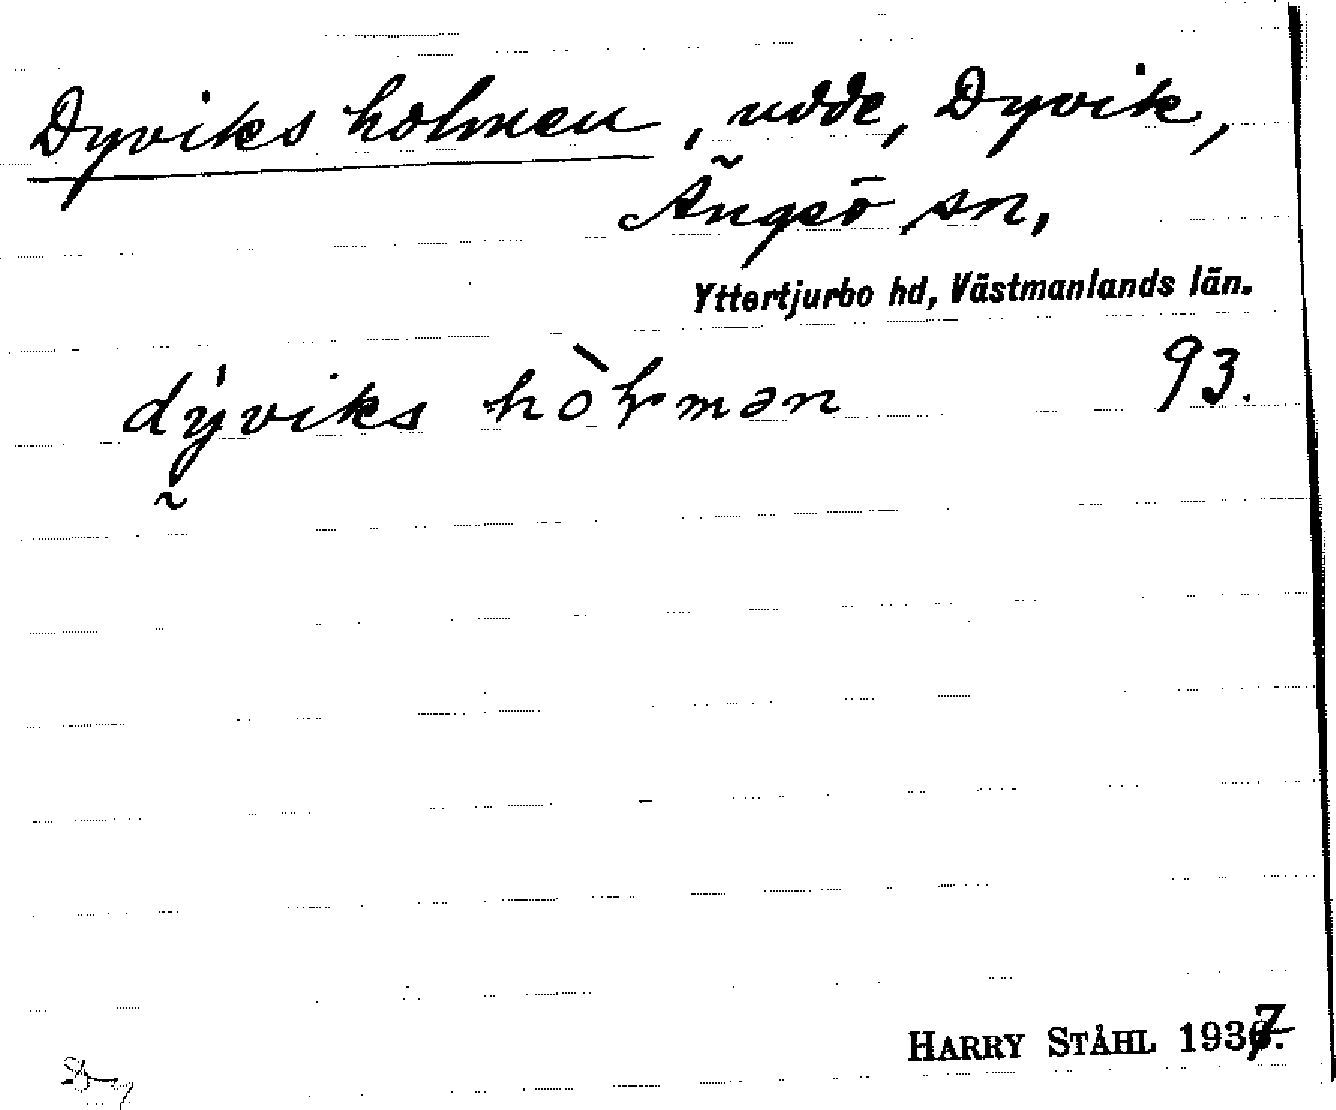 Dyviksholmen, udde, Dyvik,
Ängsö sn,
Yttertjurbo hd, Västmanlands län.
dýviks hòɫmən 93.
HARRY STÅHL 1937.
Dy